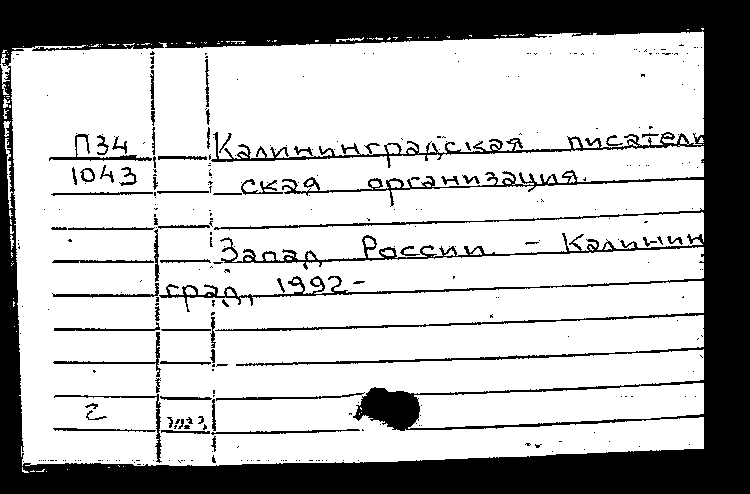 П34 Калининградская писатель
1043 ская организация.
Запад России. - Калинин
град, 1992-
2